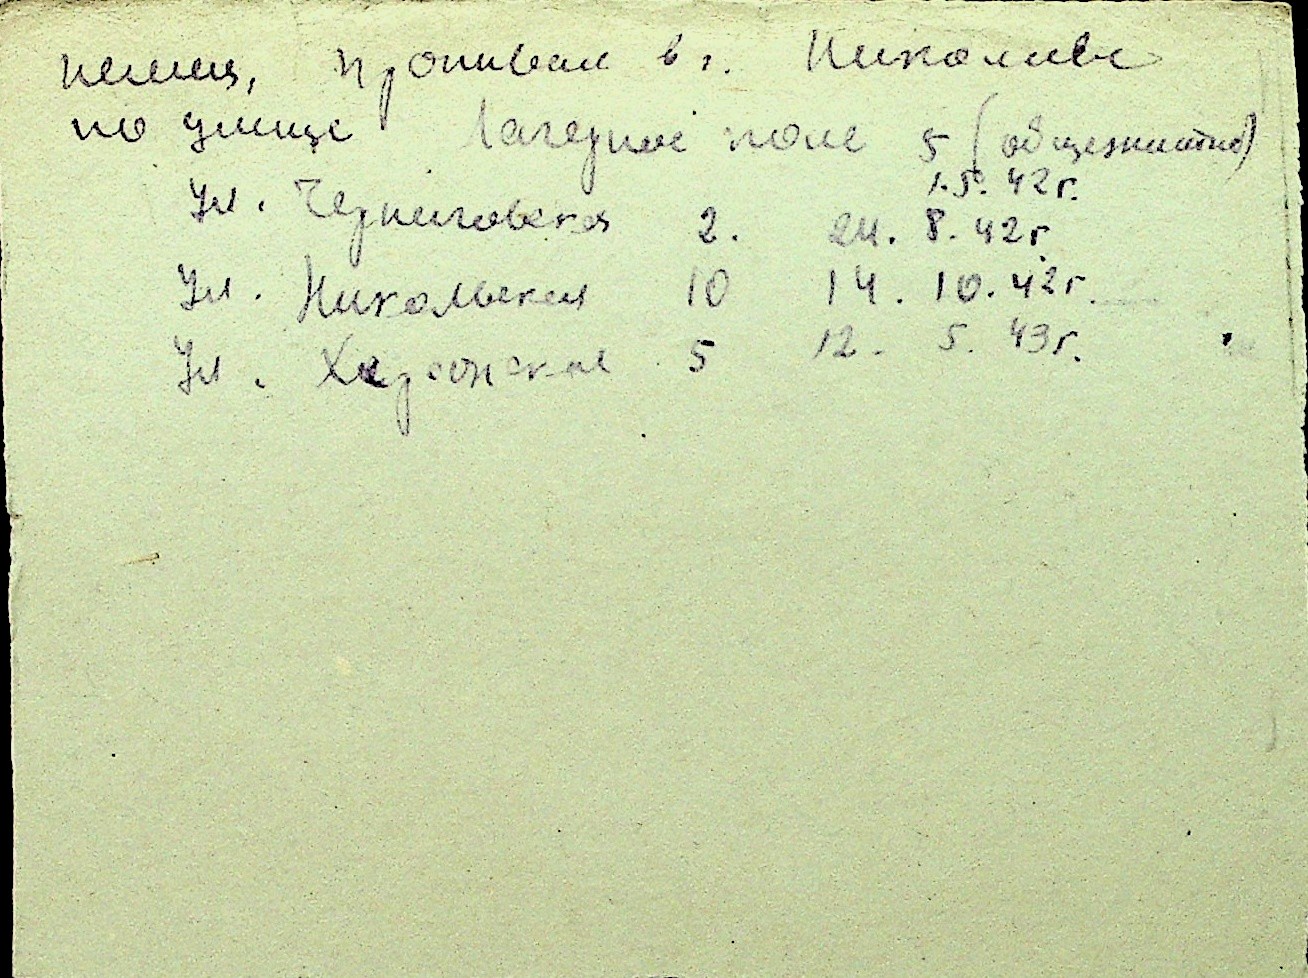 немец, проживал в г. Николаеве
по улице Лагерное поле 5 (общежитие)
1.5.42г.
ул. Черниговская 2. 24. 8. 42г.
ул. Никольская 10 14. 10. 42г.
ул. Херсонская 5 12. 5. 43г.